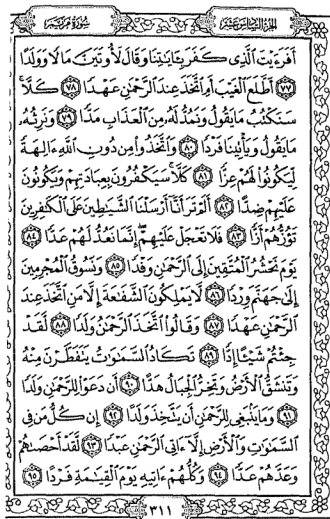 الجزء السادس عشر
سورة مريم
أَفَرَءَيْتَ ٱلَّذِى كَفَرَ بِـَٔايَٰتِنَا وَقَالَ لَأُوتَيَنَّ مَالًا وَوَلَدًا
٧٧ أَطَّلَعَ ٱلْغَيْبَ أَمِ ٱتَّخَذَ عِندَ ٱلرَّحْمَٰنِ عَهْدًا ٧٨ كَلَّا
سَنَكْتُبُ مَا يَقُولُ وَنَمُدُّ لَهُۥ مِنَ ٱلْعَذَابِ مَدًّا ٧٩ وَنَرِثُهُۥ
مَا يَقُولُ وَيَأْتِينَا فَرْدًا ٨٠ وَٱتَّخَذُوا۟ مِن دُونِ ٱللَّهِ ءَالِهَةً
لِّيَكُونُوا۟ لَهُمْ عِزًّا ٨١ كَلَّا سَيَكْفُرُونَ بِعِبَادَتِهِمْ وَيَكُونُونَ
عَلَيْهِمْ ضِدًّا ٨٢ أَلَمْ تَرَ أَنَّآ أَرْسَلْنَا ٱلشَّيَٰطِينَ عَلَى ٱلْكَٰفِرِينَ
تَؤُزُّهُمْ أَزًّا ٨٣ فَلَا تَعْجَلْ عَلَيْهِمْ إِنَّمَا نَعُدُّ لَهُمْ عَدًّا ٨٤
يَوْمَ نَحْشُرُ ٱلْمُتَّقِينَ إِلَى ٱلرَّحْمَٰنِ وَفْدًا ٨٥ وَنَسُوقُ ٱلْمُجْرِمِينَ
إِلَىٰ جَهَنَّمَ وِرْدًا ٨٦ لَّا يَمْلِكُونَ ٱلشَّفَٰعَةَ إِلَّا مَنِ ٱتَّخَذَ عِندَ
ٱلرَّحْمَٰنِ عَهْدًا ٨٧ وَقَالُوا۟ ٱتَّخَذَ ٱلرَّحْمَٰنُ وَلَدًا ٨٨ لَّقَدْ
جِئْتُمْ شَيْـًٔا إِدًّا ٨٩ تَكَادُ ٱلسَّمَٰوَٰتُ يَتَفَطَّرْنَ مِنْهُ
وَتَنشَقُّ ٱلْأَرْضُ وَتَخِرُّ ٱلْجِبَالُ هَدًّا ٩٠ أَن دَعَوْا۟ لِلرَّحْمَٰنِ وَلَدًا
٩١ وَمَا يَنۢبَغِى لِلرَّحْمَٰنِ أَن يَتَّخِذَ وَلَدًا ٩٢ إِن كُلُّ مَن فِى
ٱلسَّمَٰوَٰتِ وَٱلْأَرْضِ إِلَّآ ءَاتِى ٱلرَّحْمَٰنِ عَبْدًا ٩٣ لَّقَدْ أَحْصَىٰهُمْ
وَعَدَّهُمْ عَدًّا ٩٤ وَكُلُّهُمْ ءَاتِيهِ يَوْمَ ٱلْقِيَٰمَةِ فَرْدًا ٩٥
٣١١